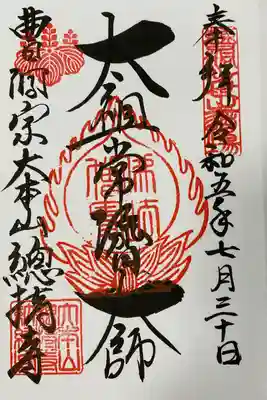 奉拝 令和五年七月三十日
太祖常濟大師
曹洞宗大本山總持寺